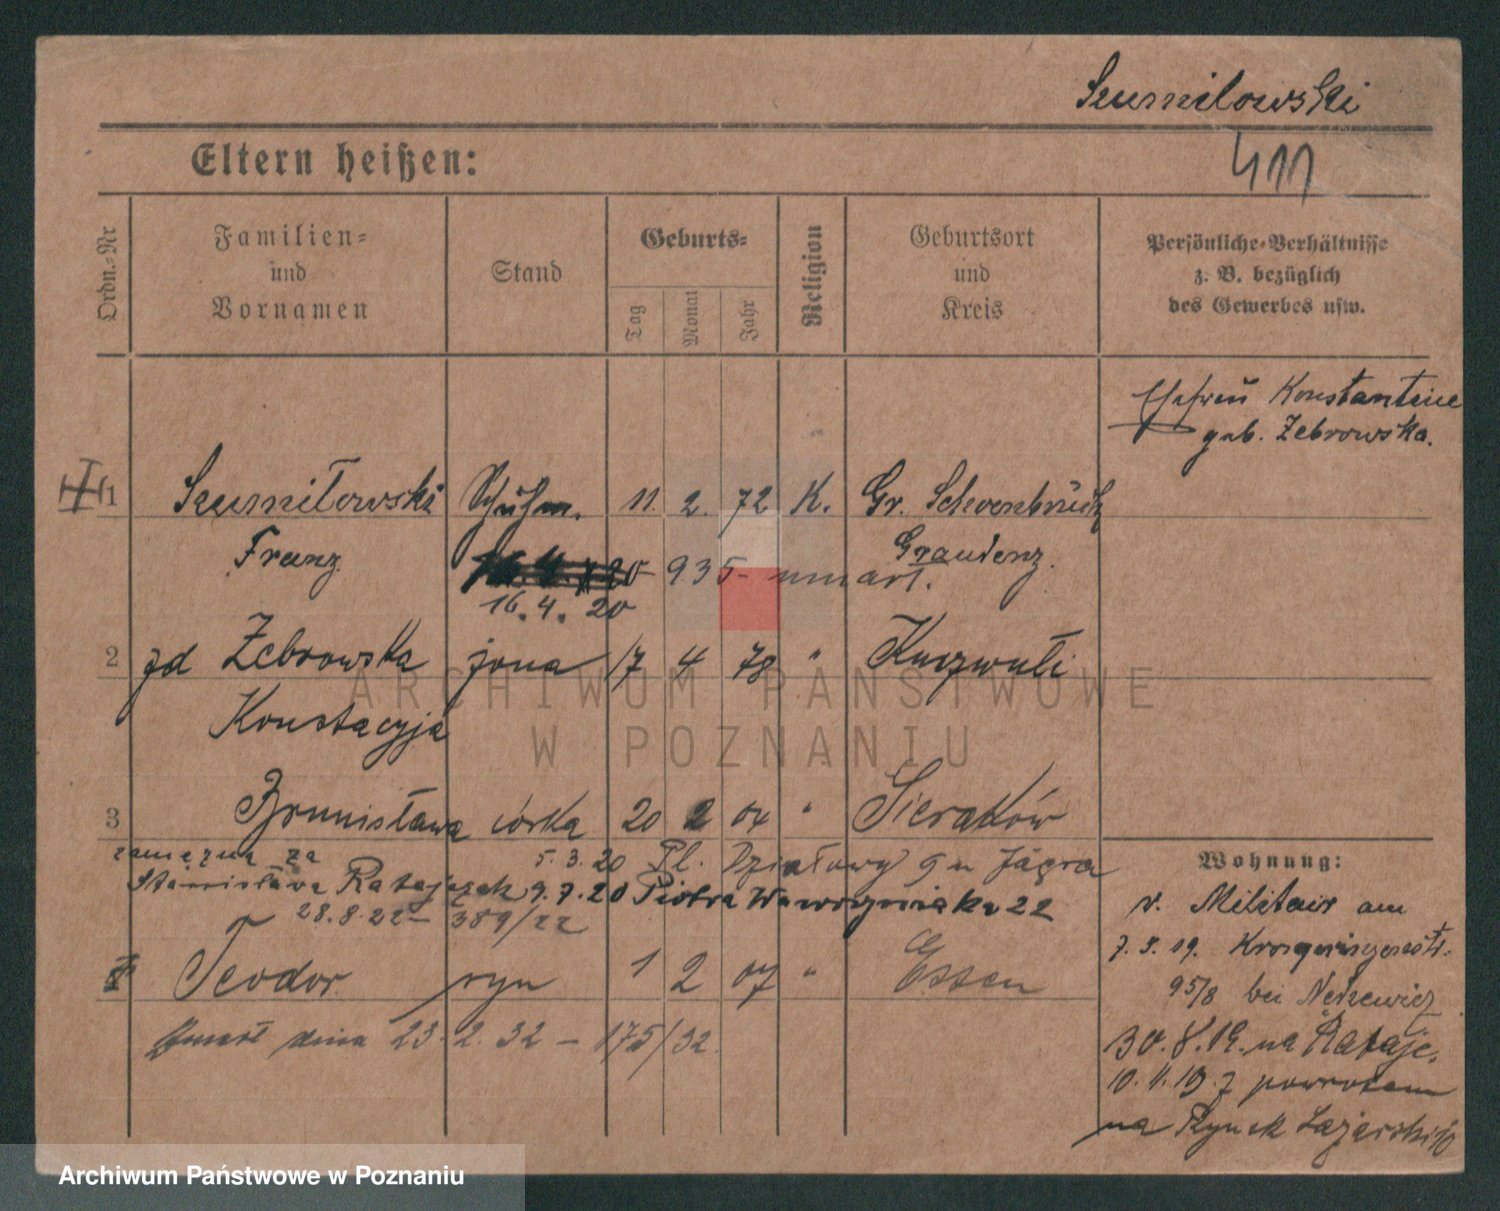 Szumilowski
Eltern heißen:
411
Ordn.-Nr
Familien-
und
Vornamen
Stand
Geburts-
Tag
Monat
Jahr
Religion
Geburtsort
und
Kreis
Persönliche-Verhältnisse
z. B. bezüglich
des Gewerbes usw.
Ehefrau Konstantine
geb. Zebrowska.
1 Szumiłowski Schuhm. 11. 2. 72 K. Gr. Schoenbrück
Franz 935 umarł. Graudenz.
16. 4. 20
2 zd Żebrowska żona 17 4 78 "
Konstacyja
3 Bronisława córka 20 2 04 " Sieraków
zamężna za 5.3.20 Pl. Działowy 9 u Jägra
Stanisława Ratajczak 9.7.20 Piotra Wawrzyniaka 22
28.8.22 - 389/22
Teodor syn 1 2 07 " Essen
Zmarł dnia 23. 2. 32 - 175/32.
Wohnung:
v. Militair am
7. 3. 19.
95/8 bei
30. 8. 19. na Rataje.
10. 11. 19. z powrotem
na Rynek Łazarski 10
ARCHIWUM PAŃSTWOWE
W POZNANIU
Archiwum Państwowe w Poznaniu